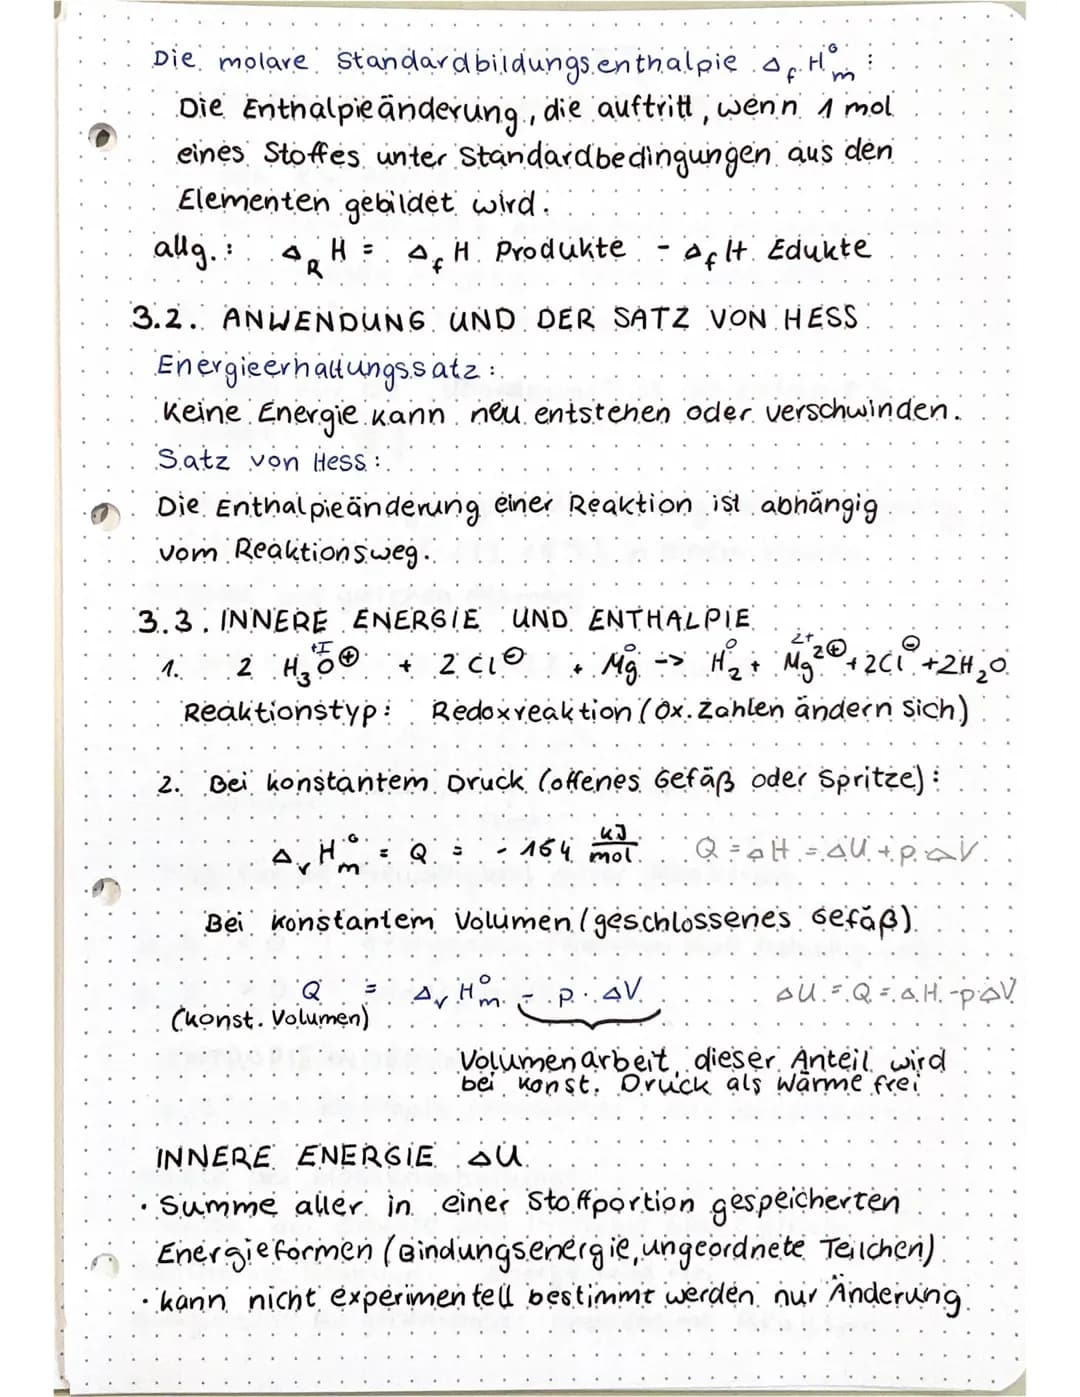 Die molare Standardbildungsenthalpie Δ_f H°_m :
Die Enthalpieänderung, die auftritt, wenn 1 mol
eines Stoffes unter Standardbedingungen aus den
Elementen gebildet wird.
allg.: Δ_R H = Δ_f H Produkte - Δ_f H Edukte
3.2. ANWENDUNG UND DER SATZ VON HESS
Energieerhaltungssatz:
Keine Energie kann neu entstehen oder verschwinden.
Satz von Hess:
Die Enthalpieänderung einer Reaktion ist abhängig
vom Reaktionsweg.
3.3. INNERE ENERGIE UND ENTHALPIE
+I 0 0 2+
1. 2 H₃O⊕ + 2 Cl⊖ + Mg -> H₂ + Mg²⊕ + 2Cl⊖ + 2H₂O
Reaktionstyp: Redoxreaktion (Ox. Zahlen ändern sich)
2. Bei konstantem Druck (offenes Gefäß oder Spritze):
Δ_r H°_m = Q = - 164 kJ/mol Q = ΔH = ΔU + p·ΔV
Bei konstantem Volumen (geschlossenes Gefäß)
Q = Δ_r H°_m - p · ΔV ΔU = Q = ΔH - p·ΔV
(konst. Volumen)
Volumenarbeit, dieser Anteil wird
bei konst. Druck als Wärme frei
INNERE ENERGIE ΔU
· Summe aller in einer Stoffportion gespeicherten
Energieformen (Bindungsenergie, ungeordnete Teilchen)
· kann nicht experimentell bestimmt werden nur Änderung